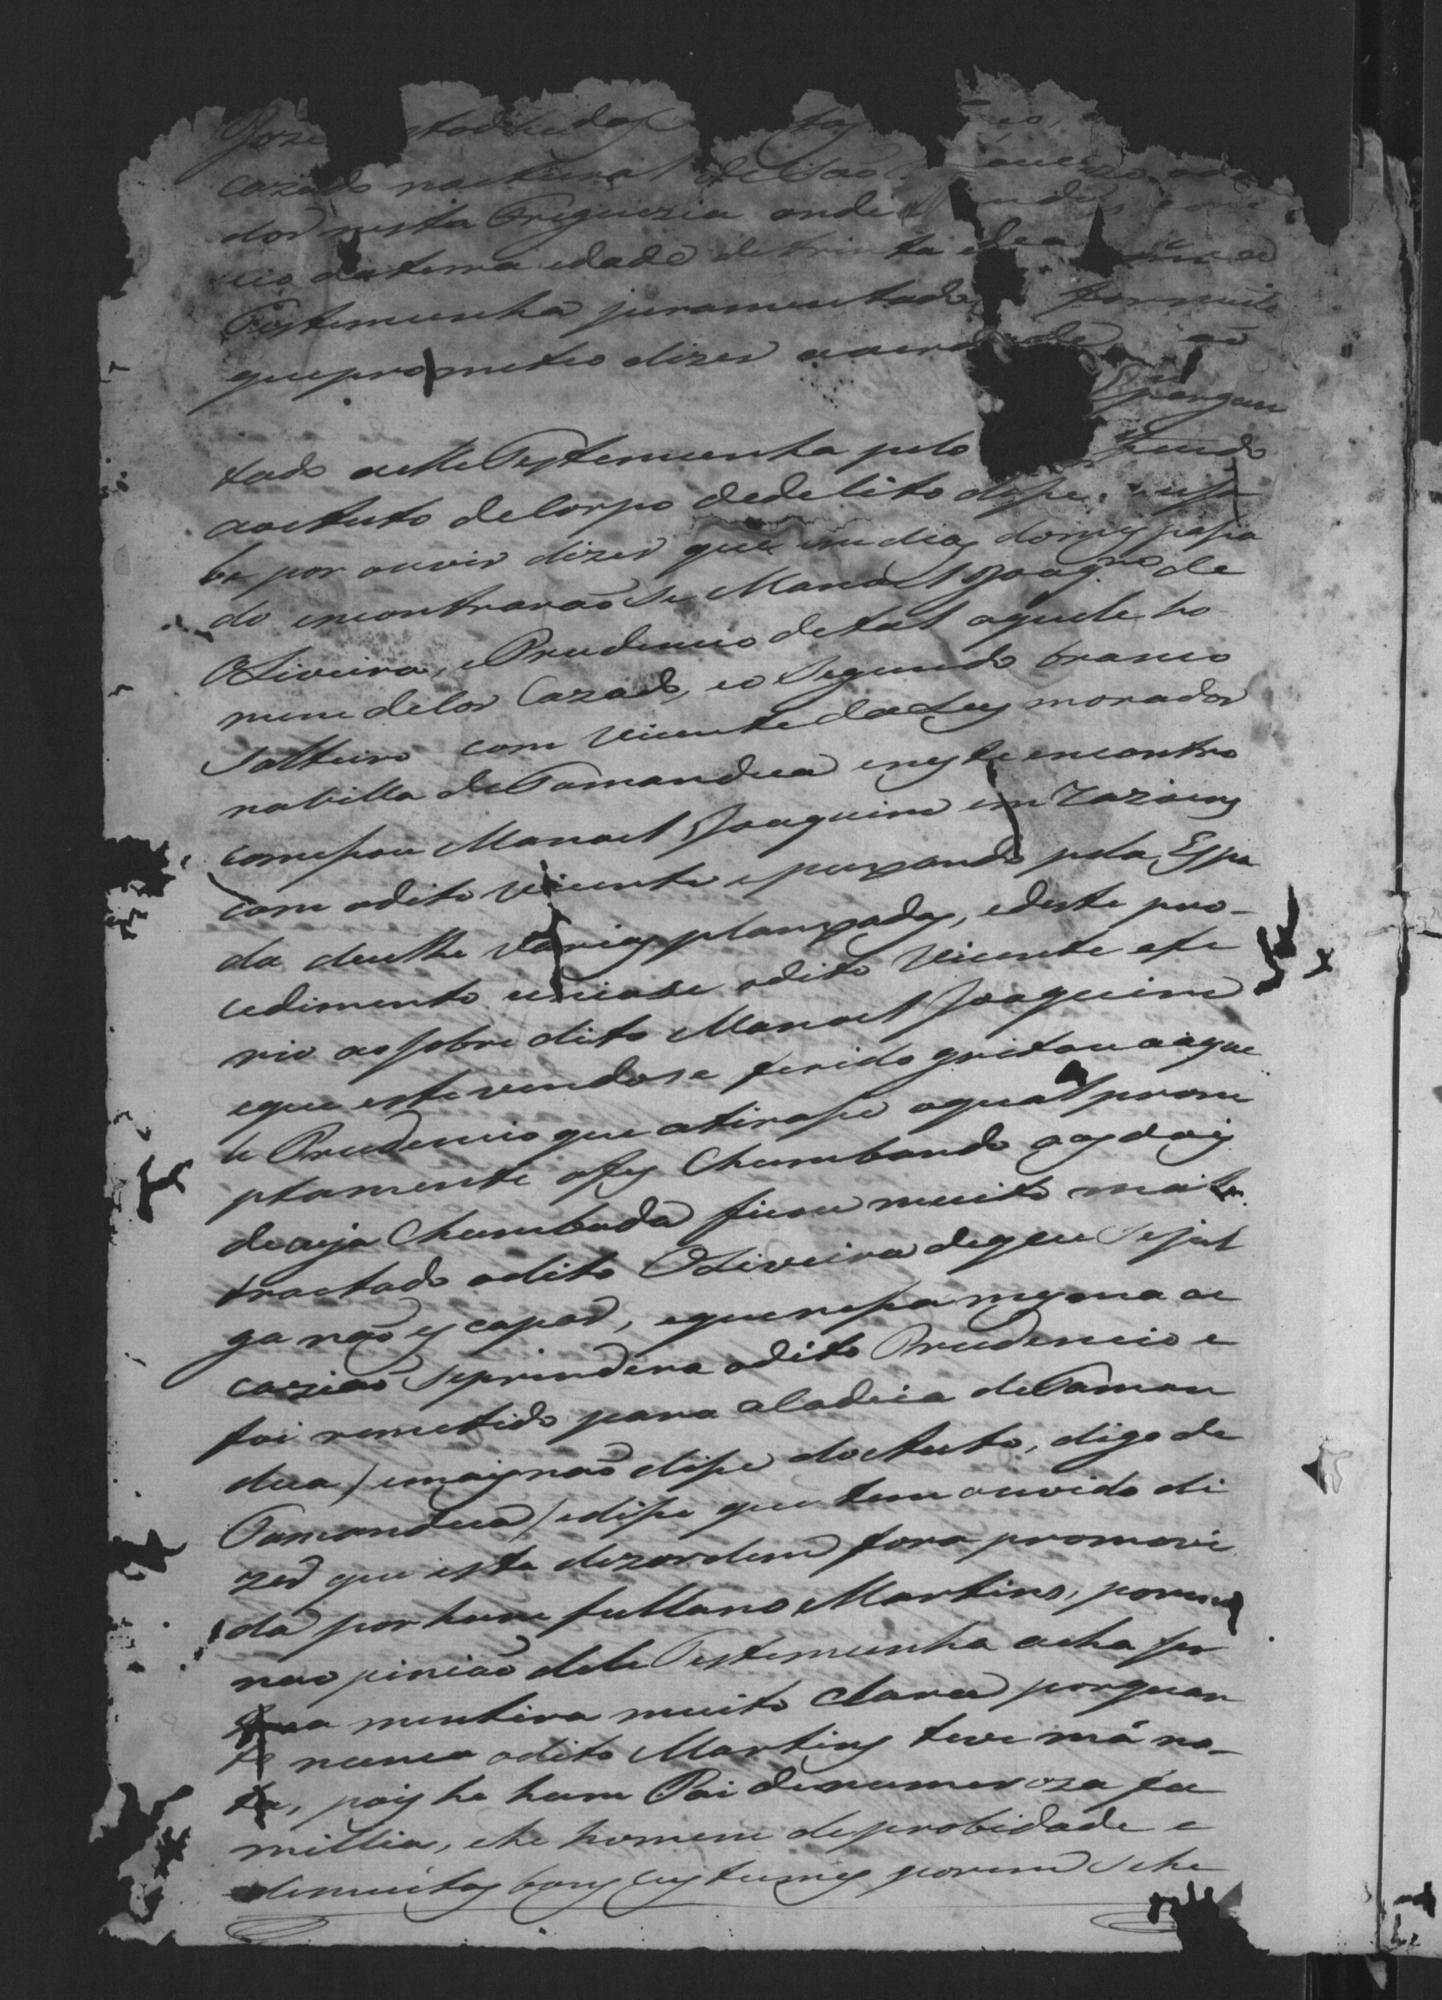 Joze
cazado natural de São
dor nesta Freguezia onde
cio da terra edade de trinta e
Testemunha juramentada
que prometeo dizer a verdade
E pergun
tado a elle Testemunha pelo
ao Auto de Corpo de delito disse,
be por ouvir dizer que em dias do mes passa
do encontrarão se Manoel Joaq.m de
Oliveira, e Prudencio de tal aquele ho
mem de Cor Cazado, e o Segundo branco
Solteiro com Vicente da Luz morador
na billa de Tamandua e neste encontro
começou Manoel Joaquim em razoens
com o dito Vicente e puxando pela Espa
da deulhe varias planxadas, e deste pro-
cedimento o dito Vicente e fe
rio ao sobre dito Manoel Joaquim
e que este vendose ferido gritou a aque
le Prudencio que atirase o qual prom
ptamente o fes Chumbando aos dois
de cuja Chumbada ficou muito mal
tractado o dito Oliveira de que se jul
ga não escapar, e que nessa mesma oc
cazião se prendera o dito Prudencio e
foi remetido para a Cadeia de Taman
dua / e mais não disse do Auto, digo de
Tamandua / e disse que tem ouvido di
zer que esta dezordem fora promovi
da por hum fullano Martins, porem
na opinião dele Testemunha acha ser
mentira muito clara porquan
to nunca o dito Martins teve má no-
ta, pois he hum Pai de numeroza fa
millia, e he homem de probidade e
de muitos bons custumes porem se he